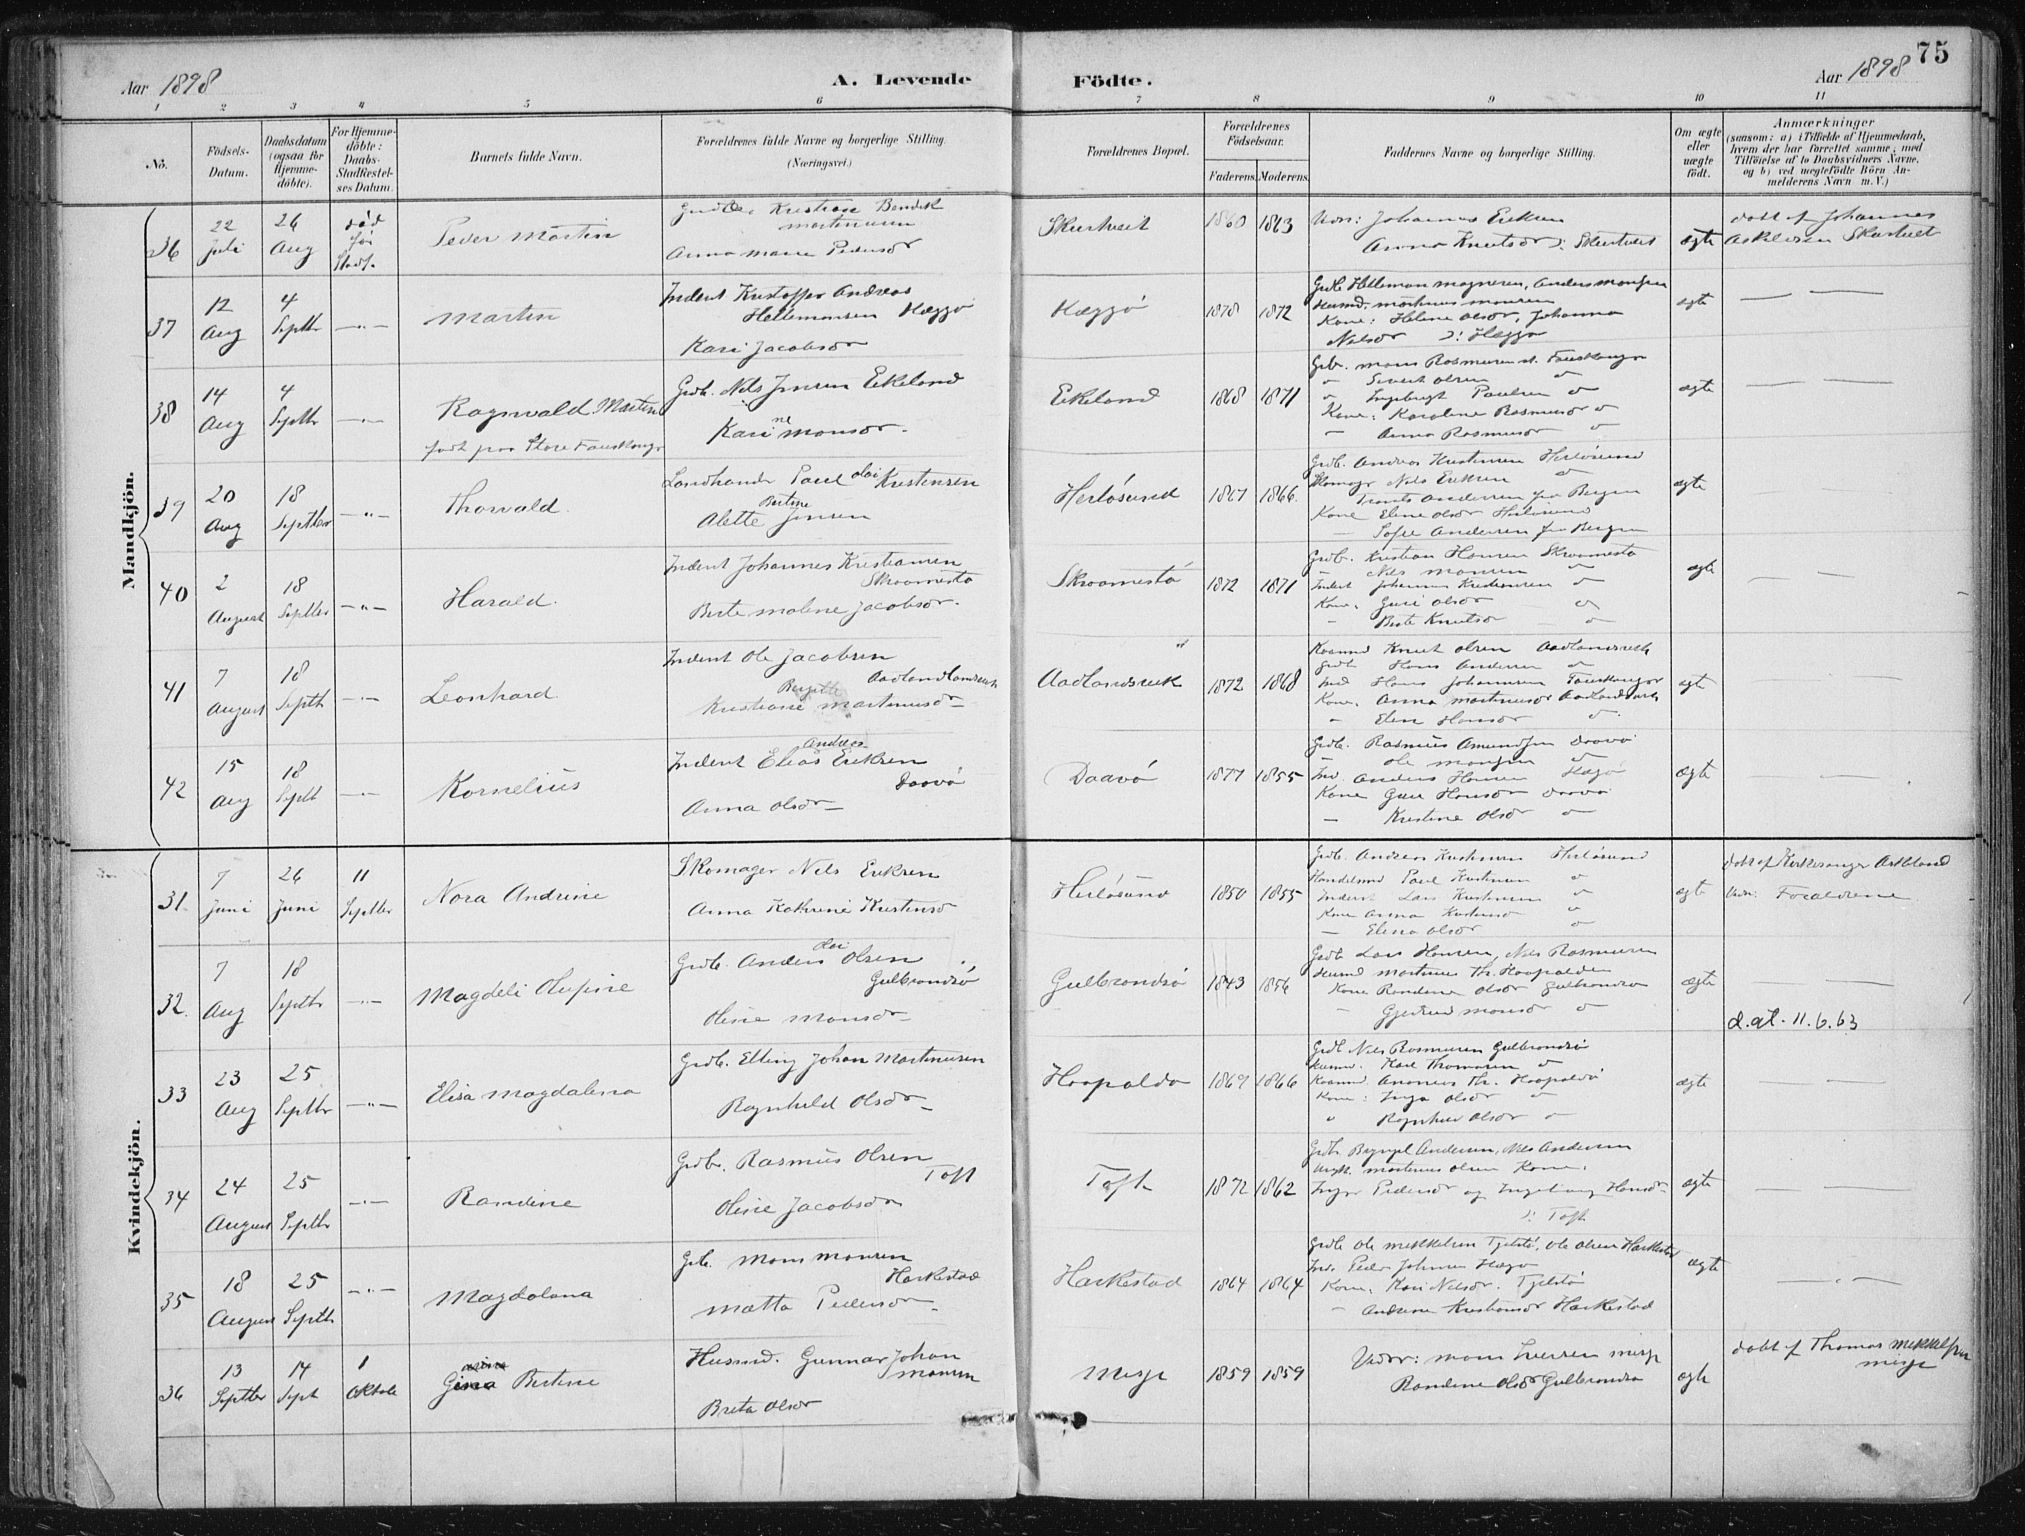 75
Aar 1898
A. Levende Födte.
Aar 1898
1 2 3 4 5 6 7 8 9 10 11
Nö.
Födsels-
Datum.
Daabsdatum
(ogsaa for
Hjemme-
döbte).
For Hjemme-
döbte:
Daabs-
Stadfæstel-
ses Datum.
Barnets fulde Navn.
Forældrenes fulde Navne og borgerlige Stilling.
(Næringsvei.)
Forældrenes Bopæl.
Forældrenes
Födselsaar.
Faderens. Moderens.
Faddernes Navne og borgerlige Stilling.
Om ægte
eller
uægte
födt.
Anmærkninger
(saasom: a) i Tilfælde af Hjemmedaab,
hvem der har forrettet samme, med
Tilföielse af to Daabsvidners Navne,
og b) ved uægtefödte Börn An-
melderens Navn m. V.)
Mandkjön.
36
22
Juli
26
Aug
död
för
Stadf.
Peder Martin
Kristian Bendik
Martinusen
Anna Marie Pedersdr
Skurtveit
1860 1863
Vidn: Johannes Eriksen
Anna Knutsdr ): Skurtveit
ægte
döbt af Johannes
Askildsen Skurtveit
37
12
Aug
4
Septbr
— " —
Martin
Inderst Kristoffer Andreas
Hellemansen Hæggö
Kari Jacobsdr
Hæggö
1878 1872
Grdb Helleman Magnesen, Anders Monsen
Husmd. Martinus Monsen
Kone: Helene Olsdr, Johanna
Nilsdr ): Hæggö
ægte
38
14
Aug
4
Septbr
— " —
Ragnvald Martin
født paa Store Fauskanger
Grdb. Nils Jensen Eikeland
Kari Monsdr.
Eikeland
1868 1871
Grb. Mons Rasmussen st. Fauskanger
" Sivert Olsen
" Ingebrigt Paulsen
Kone: Karoline Rasmusdr
— Anna Rasmusdr
ægte
39
20
Aug
18
Septbr
— " —
Thorvald.
Landhandl Paul Olai Kristensen
Bertine
Alette Jensen
Herlösund
1867 1866.
Grdb. Andreas Kristensen Herlösund
Skomagr Nils Eriksen
Andersen fra Bergen
Kone Eline Olsdr Herlösund
— Sofie Andersen fra Bergen
ægte
40
2
August
18
Septbr
— " —
Harald.
Inderst Johannes Kristiansen
Skraamestö
Berte Malene Jacobsdr.
Skraamestö
1872 1871
Grdb. Kristian Hansen Skraamestö
— Nils Monsen
Inderst Johannes Kristiansen
Kone. Guri Olsdr
— Berte Knutsdr
ægte
41
7
August
18
Septb
— " —
Leonhard
Inderst Ole Jacobsen
Aadlandsvik
Bergitte
Kristiane Martinusdr
Aadlandsvik
1872 1868
Knut Olsen Aadlandsvik
Grdb Hans Andersen
Ind Hans Johannesen Fauskanger
Kone. Anna Martinusdr Aadlandsvik
" Elen Hansdr
ægte
42
15
Aug
18
Septb
— " —
Kornelius
Andreas
Inderst Elias Eriksen
Daavö
Anna Olsdr
Daavö
1877 1855
Grdb. Rasmus Amundsen Daavö
— Ole Monsen
Ind. Anders Hansen Hægö
Kone Guri Hansdr Daavö
— Kristine Olsdr
ægte
Kvindekjön.
31
7
Juni
26
Juni
11
Septbr
Nora Andrine
Skomager Nils Eriksen
Anna Kathrine Kristensd
Herlösund
1850 1855
Grdb. Andreas Kristensen Herlösund
Handelsmd Paul Kristensen
Inderst Lars Kristensen
Kone Anna Kristensd
— Elena Olsdr
ægte
Döbt af Kirkesanger Askeland
Vidn: Forældrene
32.
7
Aug
18
Septbr
— " —
Magdeli Olufine
Grdb. Anders Olai Olsen
Gulbrandsö
Oline Monsdr
Gulbrandsö
1843 1856
Grdb Lars Hansen, Nils Rasmussen
Husmd Martinus Th. Hoopalden
Kone Randine Olsdr Gulbrandsö
— Gjertrud Monsdr
ægte
d. at. 11.6.63
33
23
Aug
25
Septbr
— " —
Elisa Magdalena
Grdb. Elling Johan Martinusen
Ragnhild Olsdr
Hoopaldo
1869 1866
Grdb Nils Rasmussen Gulbrandsö
Husmd. Karl Thomasen
Andreas Th. Hoopaldö
Kone: Inga Olsdr
" Ragnhild Olsdr
ægte
34
24
August
25
Septbr
— " —
Randine
Grdbr. Rasmus Olsen
Toft
Oline Jacobsdr
Toft
1872 1862
Grdbr. Andersen, Nils Andersen
Martinus Olsen Kone.
Inger Pedersdr og Ingeborg Hansdr
): Toft
ægte
35
18
August
25
Septbr
— " —
Magdalena
Grb. Mons Monsen
Harkestad
Matta Pedersdr
Harkestad
1864 1864
Grdb Ole Mikkelsen Tjelstö, Ole Olsen Harkestad
Ind. Peder Johnsen Hægö
Kone. Kari Nilsdr. Tjelstö
— Andrine Kristiansdr Harkestad
ægte
36
13
Septbr
14
Sept
1
Oktob
Gina Bertine
Husmd. Gunnar Johan
Monsen
Breta Olsdr
Misje
1859 1859
Vidnr: Mons Iversen Misje
Randine Olsdr Gulbrandsö
ægte
döbt af Thomas Mikkelsen
Misje